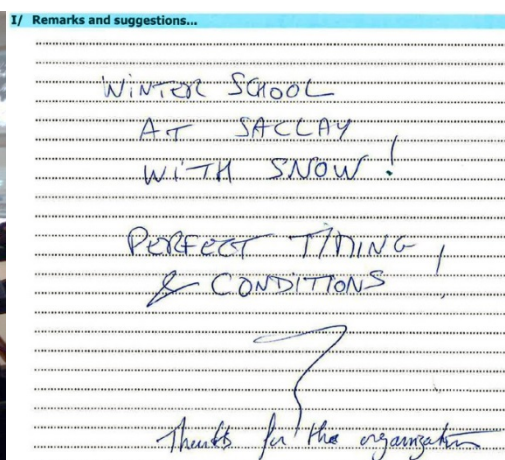 I/ Remarks and suggestions...
WINTER SCHOOL
AT SACLAY
WITH SNOW !
PERFECT TIMING
& CONDITIONS !
Thanks for the organization